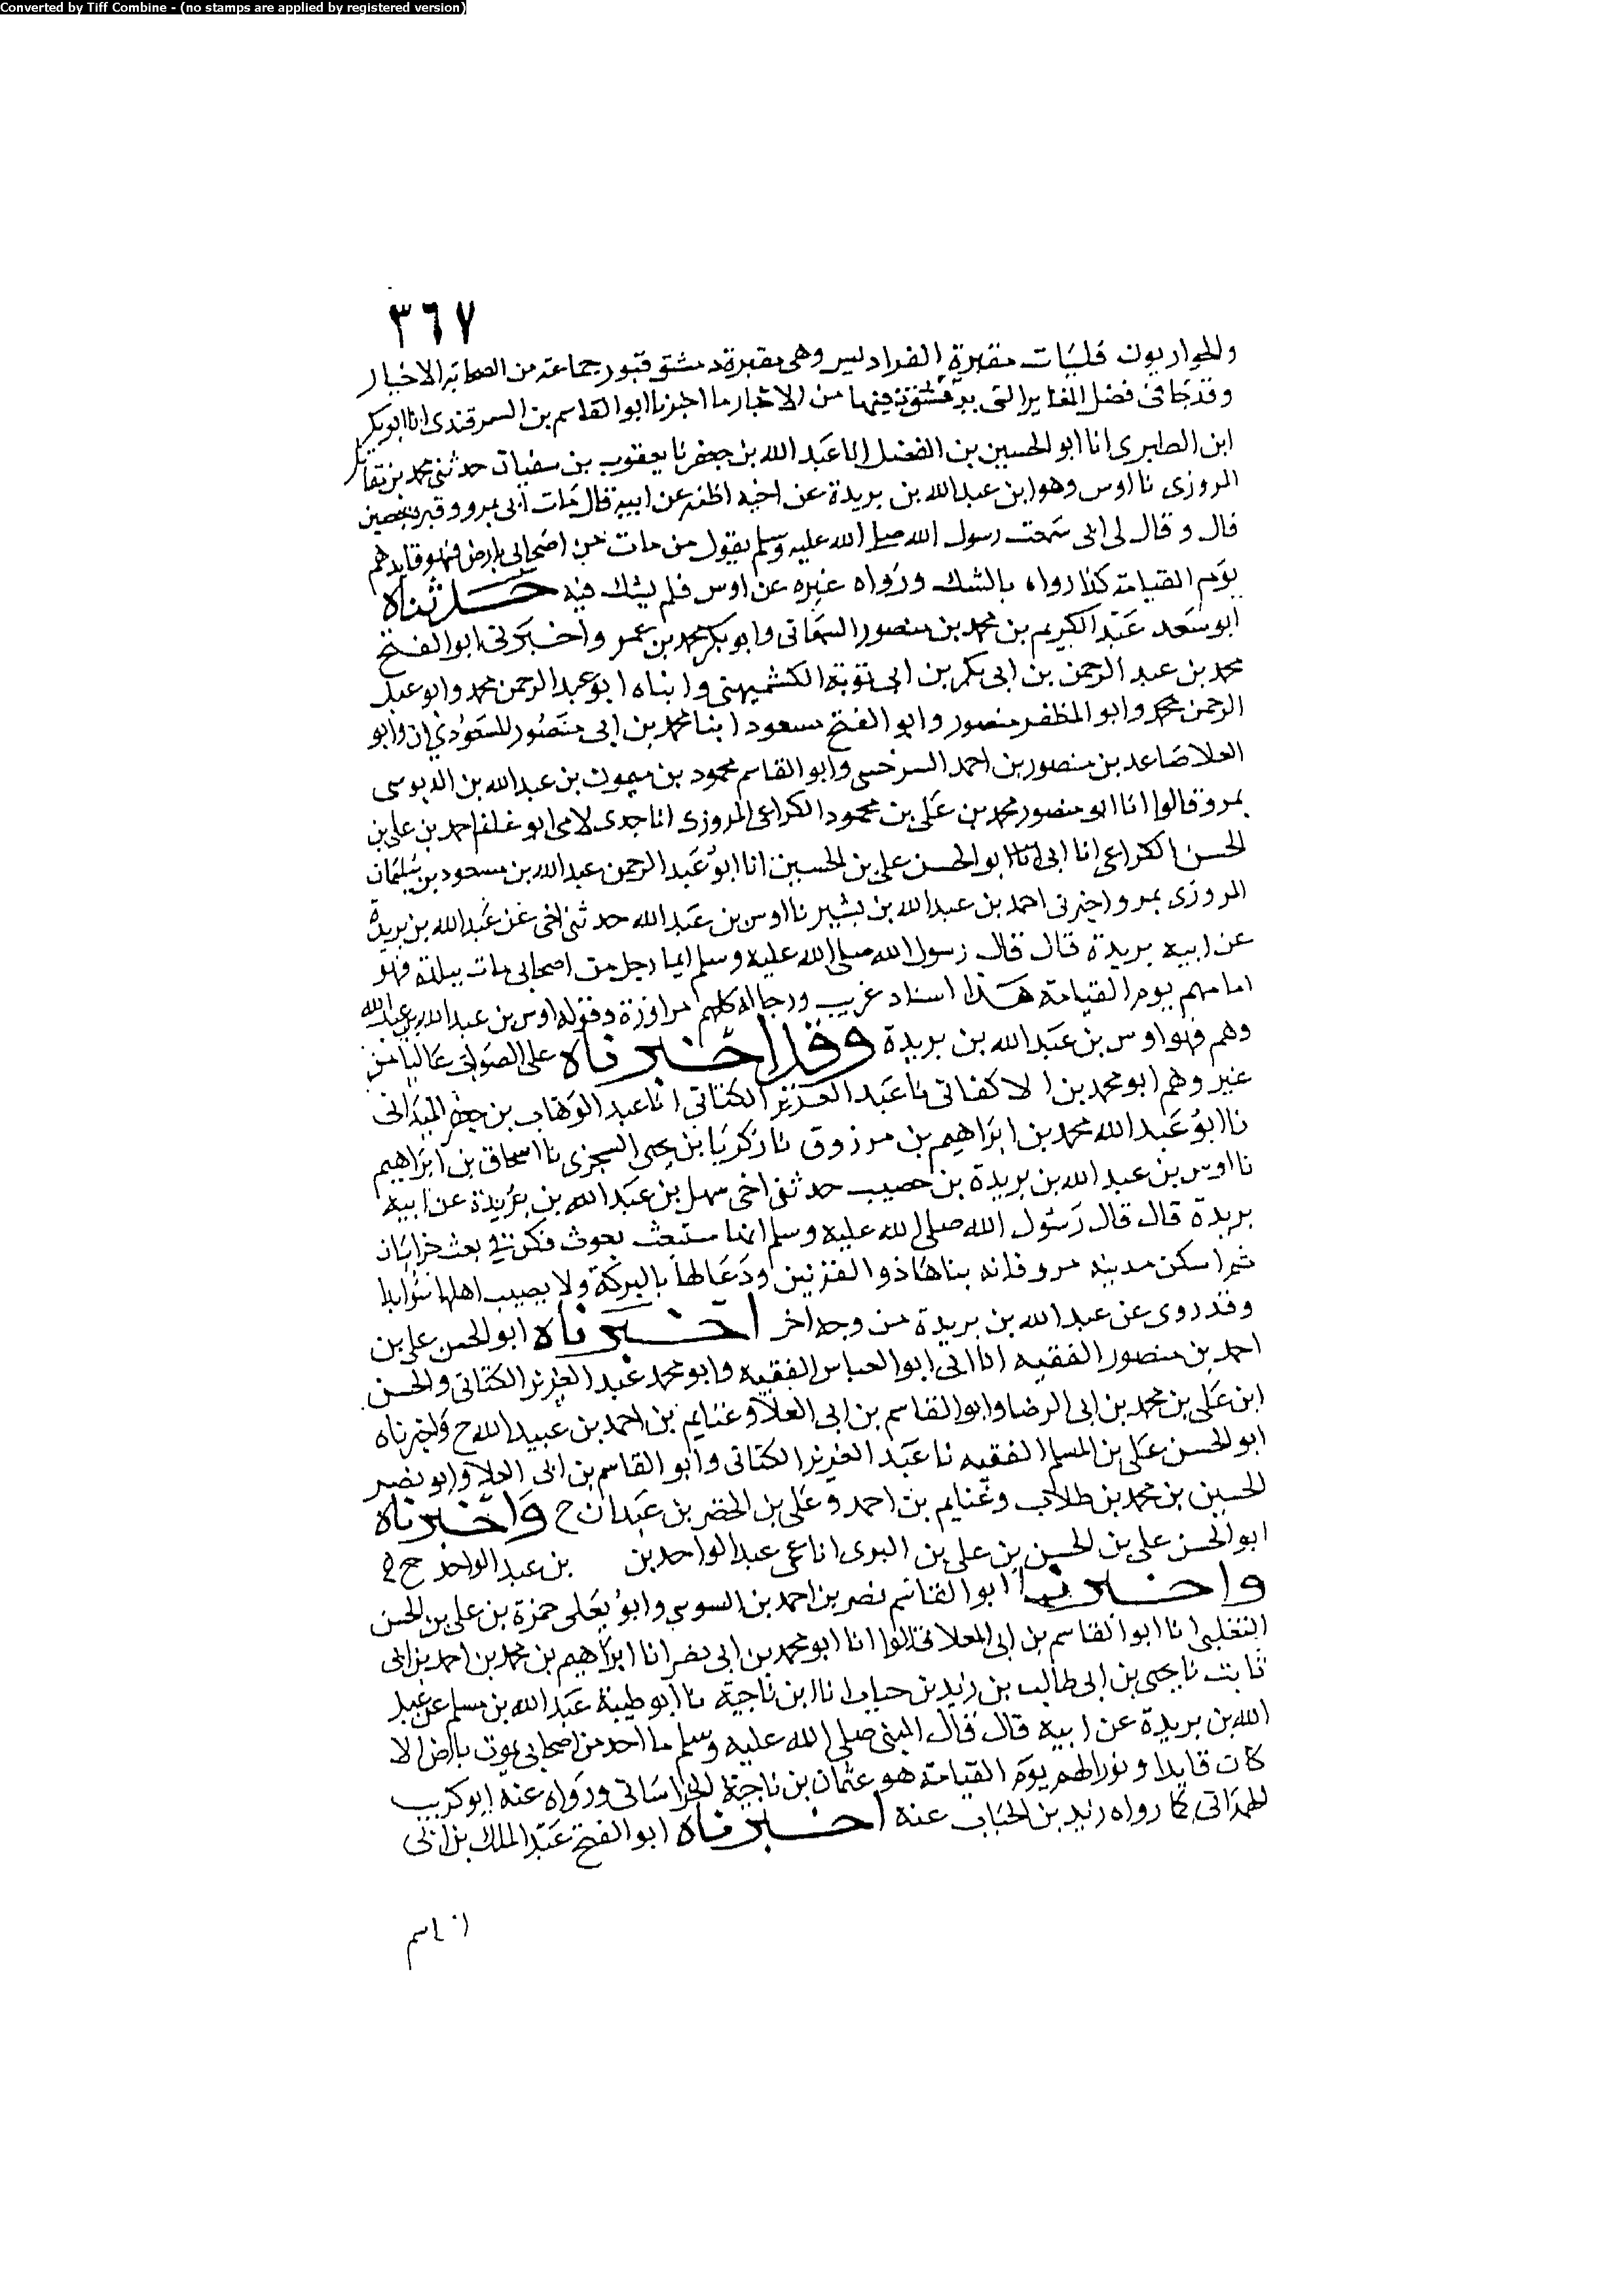 Converted by Tiff Combine - (no stamps are applied by registered version)
٣٦٧
والحواريون فليات مقبرة الفراديس وهى مقبرة دمشق قبور جماعة من الصحابة الاخيار
وقد جا فى فضل المقابر التى بدمشق فيها من الاخبار ما اخبرنا ابو القاسم بن السمرقندى انا ابو بكر
ابن الطبرى انا ابو الحسين بن الفضل انا عبد الله بن جعفر نا يعقوب بن سفيان حدثنى محمد بن مقاتل
المروزى نا اوس وهو ابن عبد الله بن بريدة عن اخيه اظنه عن ابيه قال مات ابى بمرو وقبره بحصين
قال وقال لى ابى سمعت رسول الله صلى الله عليه وسلم يقول من مات من اصحابى بارض فهو قايدهم
يوم القيامة كذا رواه بالشك ورواه غيره عن اوس فلم يشك فيه حدثناه
ابو سعد عبد الكريم بن محمد بن منصور السمعانى وابو بكر محمد بن عمر واخبرنى ابو الفتح
محمد بن عبد الرحمن بن ابى بكر بن ابى توبة الكشميهنى وابناه ابو عبد الرحمن محمد وابو عبد
الرحمن محمد وابو المظفر منصور وابو الفتح مسعود ابنا محمد بن ابى منصور المسعوديان وابو
العلا صاعد بن منصور بن احمد السرخسى وابو القاسم محمود بن ميمون بن عبد الله بن الدبوسى
بمرو قالوا انا ابو منصور محمد بن على بن محمود الكراعى المروزى انا جدى لامى ابو غانم احمد بن على بن
الحسن الكراعى انا ابى انا ابو الحسن على بن الحسين انا ابو عبد الرحمن عبد الله بن مسعود بن سليمان
المروزى بمرو اخبرنى احمد بن عبد الله بن بشير نا اوس بن عبد الله حدثنى اخى عن عبد الله بن بريدة
عن ابيه بريدة قال قال رسول الله صلى الله عليه وسلم ايما رجل من اصحابى مات ببلدة فهو
امامهم يوم القيامة هذا اسناد غريب ورجاله كلهم مراوزة وقوله اوس بن عبد الله بن عبد الله
وهم فهو اوس بن عبد الله بن بريدة وقد اخبرناه على الصواب عاليا من
غير وهم ابو محمد بن الاكفانى نا عبد العزيز الكتانى انا عبد الوهاب بن جعفر الميدانى
نا ابو عبد الله محمد بن ابراهيم بن مرزوق نا زكريا بن يحيى السجزى نا اسحاق بن ابراهيم
نا اوس بن عبد الله بن بريدة بن حصيب حدثنى اخى سهل بن عبد الله بن بريدة عن ابيه
بريدة قال قال رسول الله صلى الله عليه وسلم انها ستبعث بعوث فكن فى بعث خراسان
ثم اسكن مدينة مرو فانه بناها ذو القرنين ودعا لها بالبركة ولا يصيب اهلها سؤ ابدا
وقد روى عن عبد الله بن بريدة من وجه اخر اخبرناه ابو الحسن على بن
احمد بن منصور الفقيه انا ابى ابو العباس الفقيه وابو محمد عبد العزيز الكتانى والحسن
ابن على بن محمد بن ابى الرضا وابو القاسم بن ابى العلا وغنايم بن احمد بن عبيد الله ح واخبرناه
ابو الحسن على بن المسلم الفقيه نا عبد العزيز الكتانى وابو القاسم بن ابى العلا وابو نصر
الحسين بن محمد بن طلاب وغنايم بن احمد وعلى بن الخضر بن عبدان ح واخبرناه
ابو الحسن على بن الحسن بن على بن البرى انا عمى عبد الواحد بن بن عبد الواحد ح
واخبرنا ابو القاسم نصر بن احمد بن السوسى وابو يعلى حمزة بن على بن الحسن
الثعلبى انا ابو القاسم بن ابى العلا قالوا انا ابو محمد بن ابى نصر انا ابراهيم بن محمد بن احمد بن ابى
ثابت نا يحيى بن ابى طالب بن زيد بن حباب انا ابن ناجية نا ابو طيبة عبد الله بن مسلم عن عبد
الله بن بريدة عن ابيه قال قال النبى صلى الله عليه وسلم ما احد من اصحابى يموت بارض الا
كان قايدا ونورا لهم يوم القيامة هو عثمان بن ناجية الخراسانى ورواه عنه ابو كريب
الهمذانى كما رواه زيد بن الحباب عنه اخبرناه ابو الفتح عبد الملك بن ابى